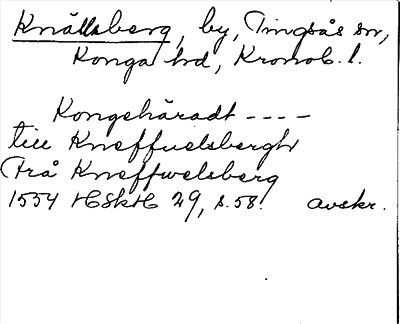 Knällsberg, by, Tingsås sn,
Konga hd, Kronob. l.
Kongehäradt ----
till Kneffuelsbergh
Frå Kneffwelsberg
1554 HSkH 29, s. 58. avskr.